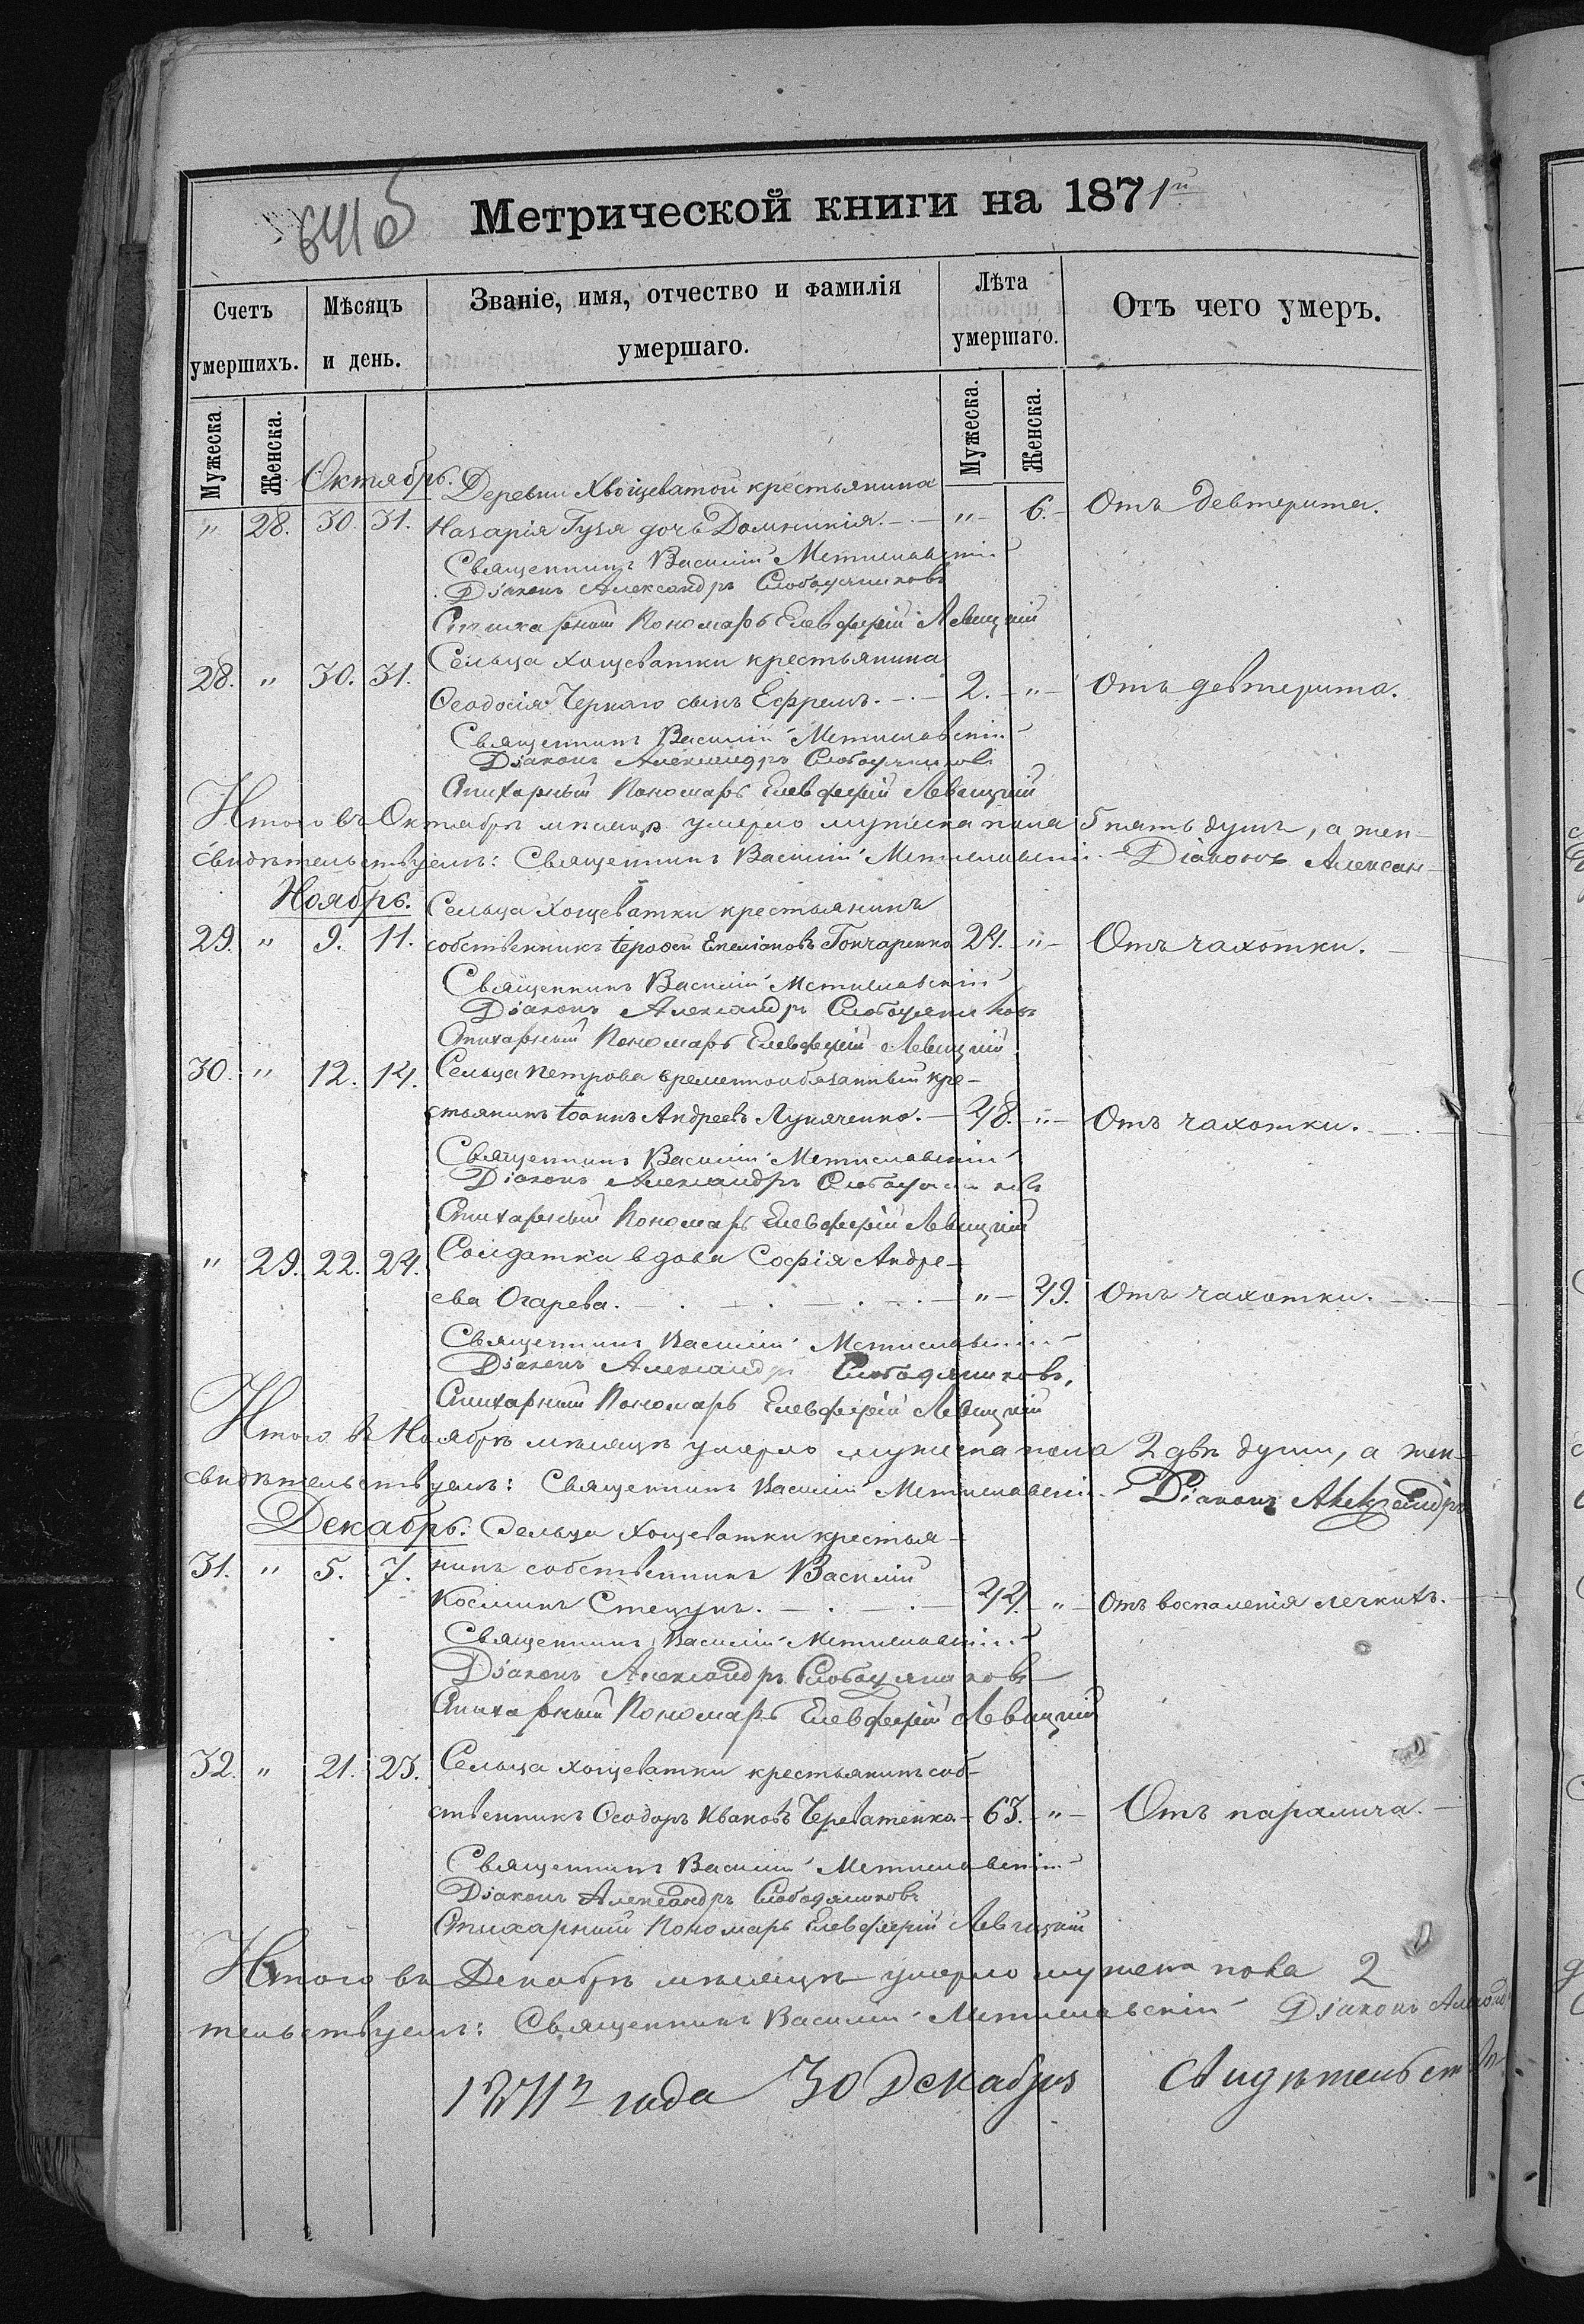 641 об
Метрической книги на 1871й
Счетъ умершихъ.
Мѣсяцъ и день.
Званіе, имя, отчество и фамилія умершаго.
Лѣта умершаго.
Отъ чего умеръ.
Мужеска
Женска.
Мужеска.
Женска.
Октябрь. Деревни Хвощеватой крестьянина
" 28. 30. 31. Назарія Гузя дочь Домникія. " 6. Отъ девтерита.
Священникъ Василій Мстиславскій
Діаконъ Александръ Слободяниковъ
Стихарный Пономарь Елевферій Левицкій
Сельца Хощеватки крестьянина
28. " 30. 31. Ѳеодосія Чернаго сынъ Ефремъ. 2. " Отъ девтерита.
Священникъ Василій Мстиславскій
Діаконъ Александръ Слободяниковъ
Стихарный Пономарь Елевферій Левицкій
Итого въ Октябрѣ мѣсяцѣ умерло мужеска пола 5 пять душъ, а жен-
свидѣтельствуемъ: Священникъ Василій Мстиславскій Діаконъ Алексан-
Ноябрь. Сельца Хощеватки крестьянинъ
29. " 9. 11. собственникъ Іероѳей Емеліановъ Гончаренко 24. " Отъ чахотки.
Священникъ Василій Мстиславскій
Діаконъ Александръ Слободяниковъ
Стихарный Пономарь Елевферій Левицкій
30. " 12. 14. Сельца Петрова временнообязанный кре-
стьянинъ Іоаннъ Андреевъ Лукяченко. 48. " Отъ чахотки.
Священникъ Василій Мстиславскій
Діаконъ Александръ Слободяниковъ
Стихарный Пономарь Елевферій Левицкій
" 29. 22. 24. Солдатка вдова Софія Андре-
ева Огарева. " 49. Отъ чахотки.
Священникъ Василій Мстиславскій
Діаконъ Александръ Слободяниковъ,
Стихарный Пономарь Елевферій Левицкій
Итого въ Ноябрѣ мѣсяцѣ умерло мужеска пола 2 двѣ души, а жен-
свидѣтельствуемъ: Священникъ Василій Мстиславскій Діаконъ Александръ
Декабрь. Сельца Хощеватки крестья-
31. " 5. 7. нинъ собственникъ Василій
Косминъ Стецунъ. 44. " Отъ воспаленія легкихъ.
Священникъ Василій Мстиславскій
Діаконъ Александръ Слободяниковъ
Стихарный Пономарь Елевферій Левицкій
32. " 21. 23. Сельца Хощеватки крестьянинъ соб-
ственникъ Ѳеодоръ Иваковъ Череватенко. 63. " Отъ паралича.
Священникъ Василій Мстиславскій
Діаконъ Александръ Слободяниковъ
Стихарный Пономарь Елевферій Левицкій
Итого въ Декабрѣ мѣсяцѣ умерло мужеска пола 2
тельствуемъ: Священникъ Василій Мстиславскій Діаконъ
1871го года 30 Декабря